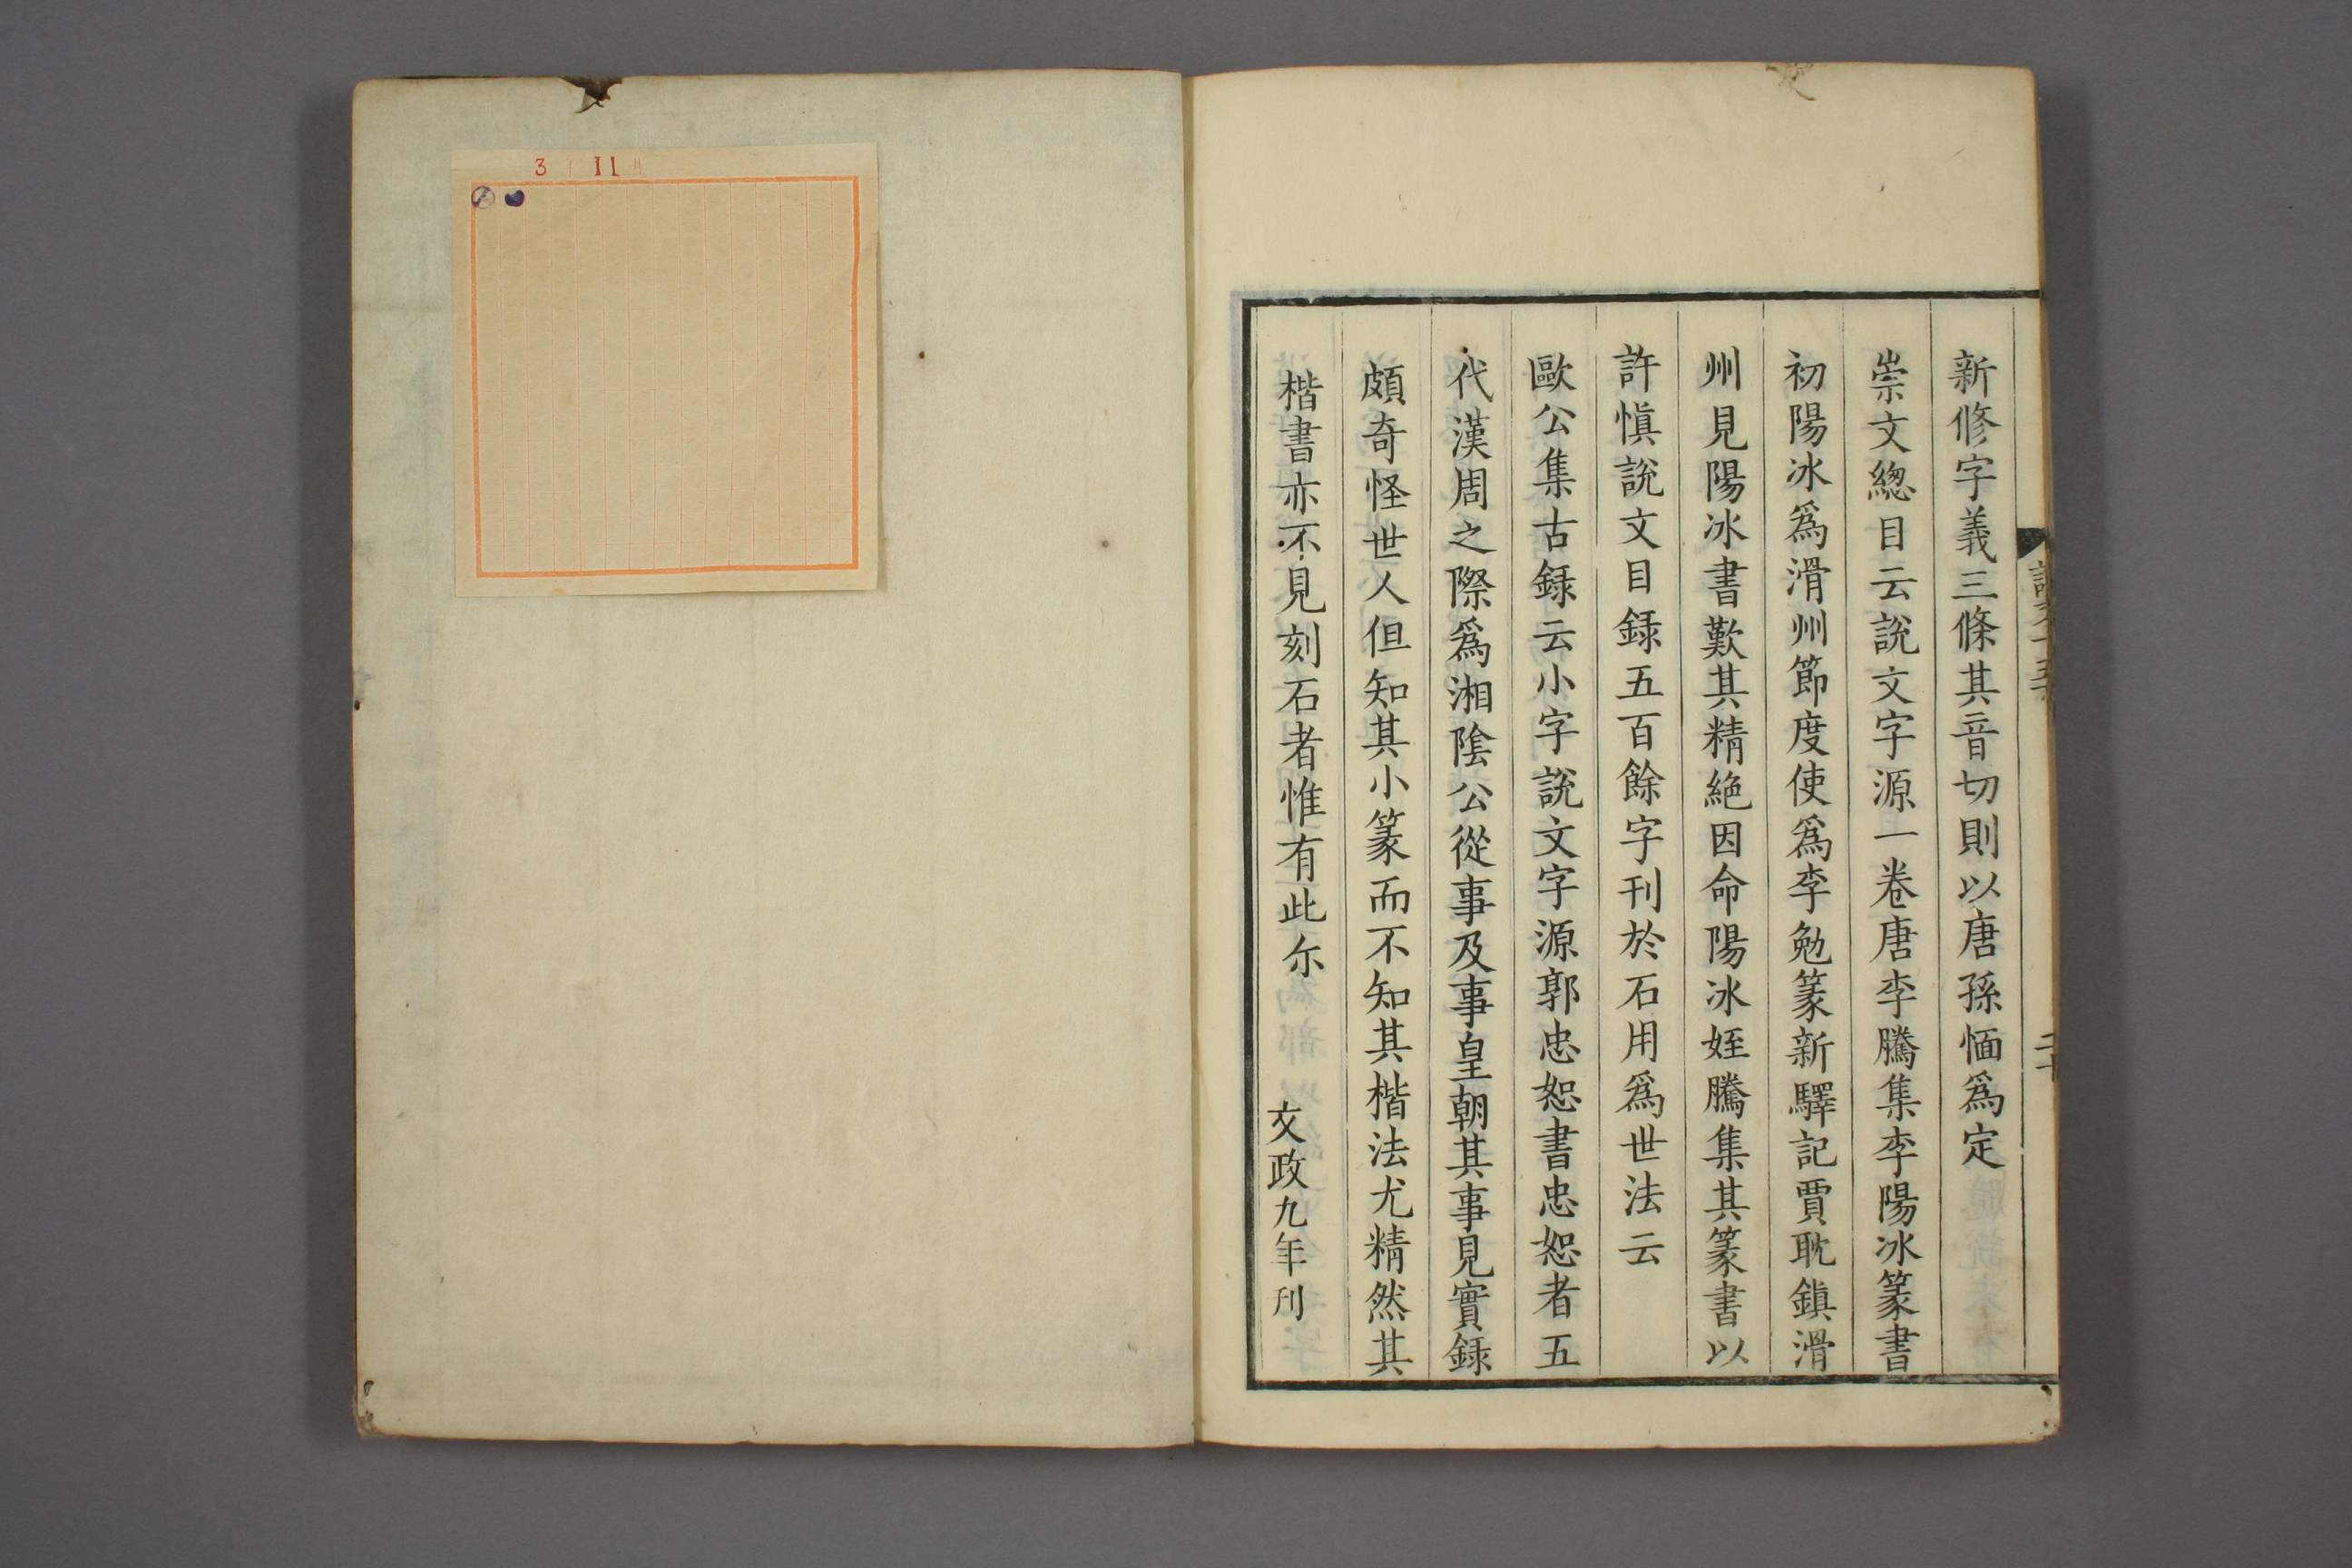 新修字義三條其音切則以唐孫愐爲定
崇文總目云說文字源一卷唐李騰集李陽冰篆書
初陽冰爲滑州節度使爲李勉篆新驛記賈耽鎮滑
州見陽冰書歎其精絶因命陽冰姪騰集其篆書以
許愼說文目録五百餘字刊於石用爲世法云
歐公集古録云小字說文字源郭忠恕書忠恕者五
代漢周之際爲湘陰公從事及事皇朝其事見實録
頗奇怪世人但知其小篆而不知其楷法尤精然其
楷書亦不見刻石者惟有此尒
文政九年刊
3 11